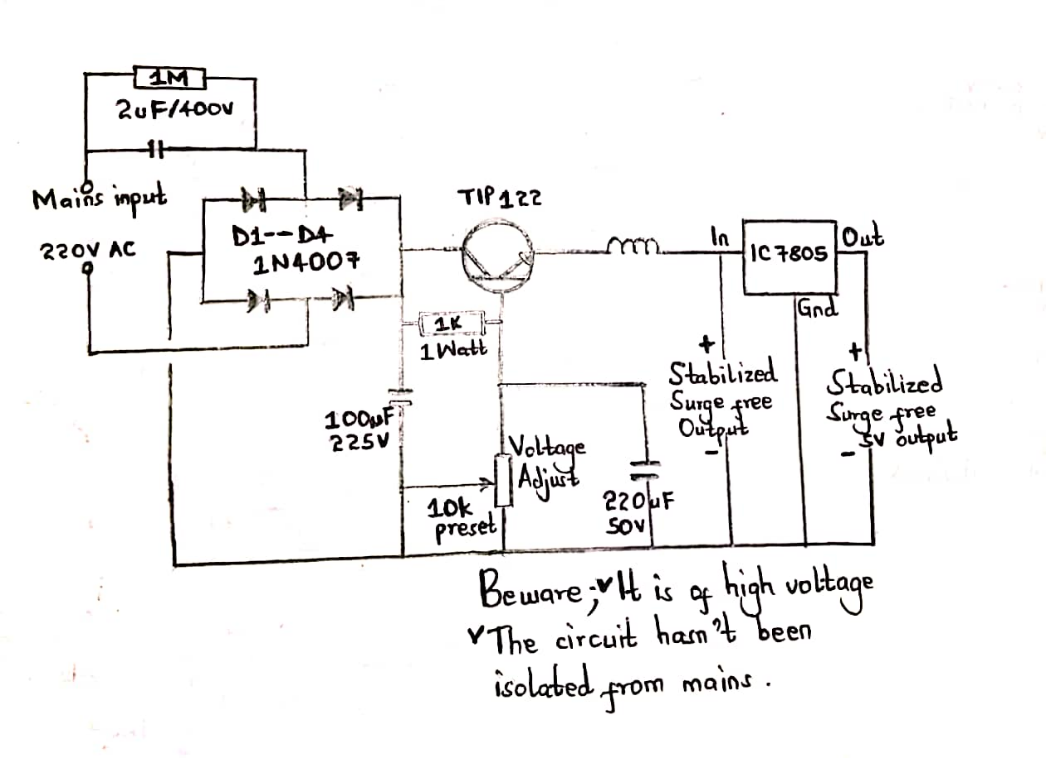 1M
2uF/400V
Mains input
220V AC
D1--D4
1N4007
TIP122
1K
1Watt
100uF
225V
10k
preset
Voltage
Adjust
220uF
50V
In
IC7805
Out
Gnd
+
Stabilized
Surge free
Output
-
+
Stabilized
Surge free
- 5V output
Beware; ✓It is of high voltage
✓The circuit hasn't been
isolated from mains.